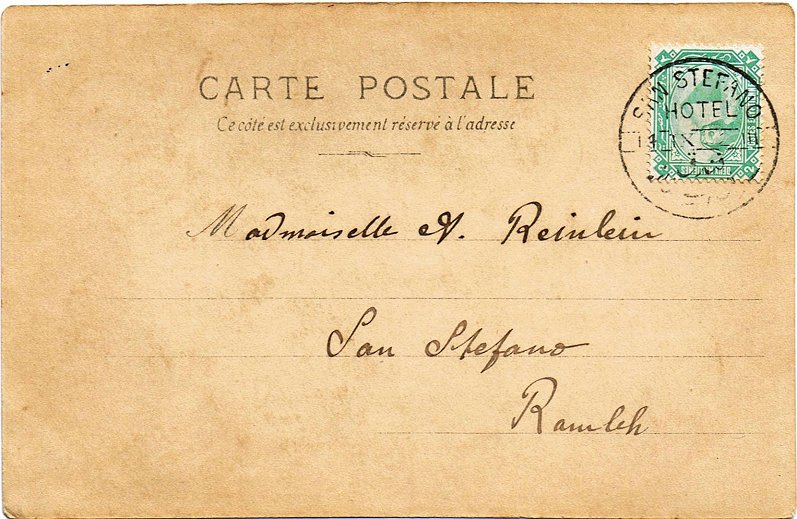 CARTE POSTALE
Ce côté est exclusivement réservé à l'adresse
SAN STEFANO
HOTEL
Madmoiselle A. Reinlein
San Stefano
Ramleh